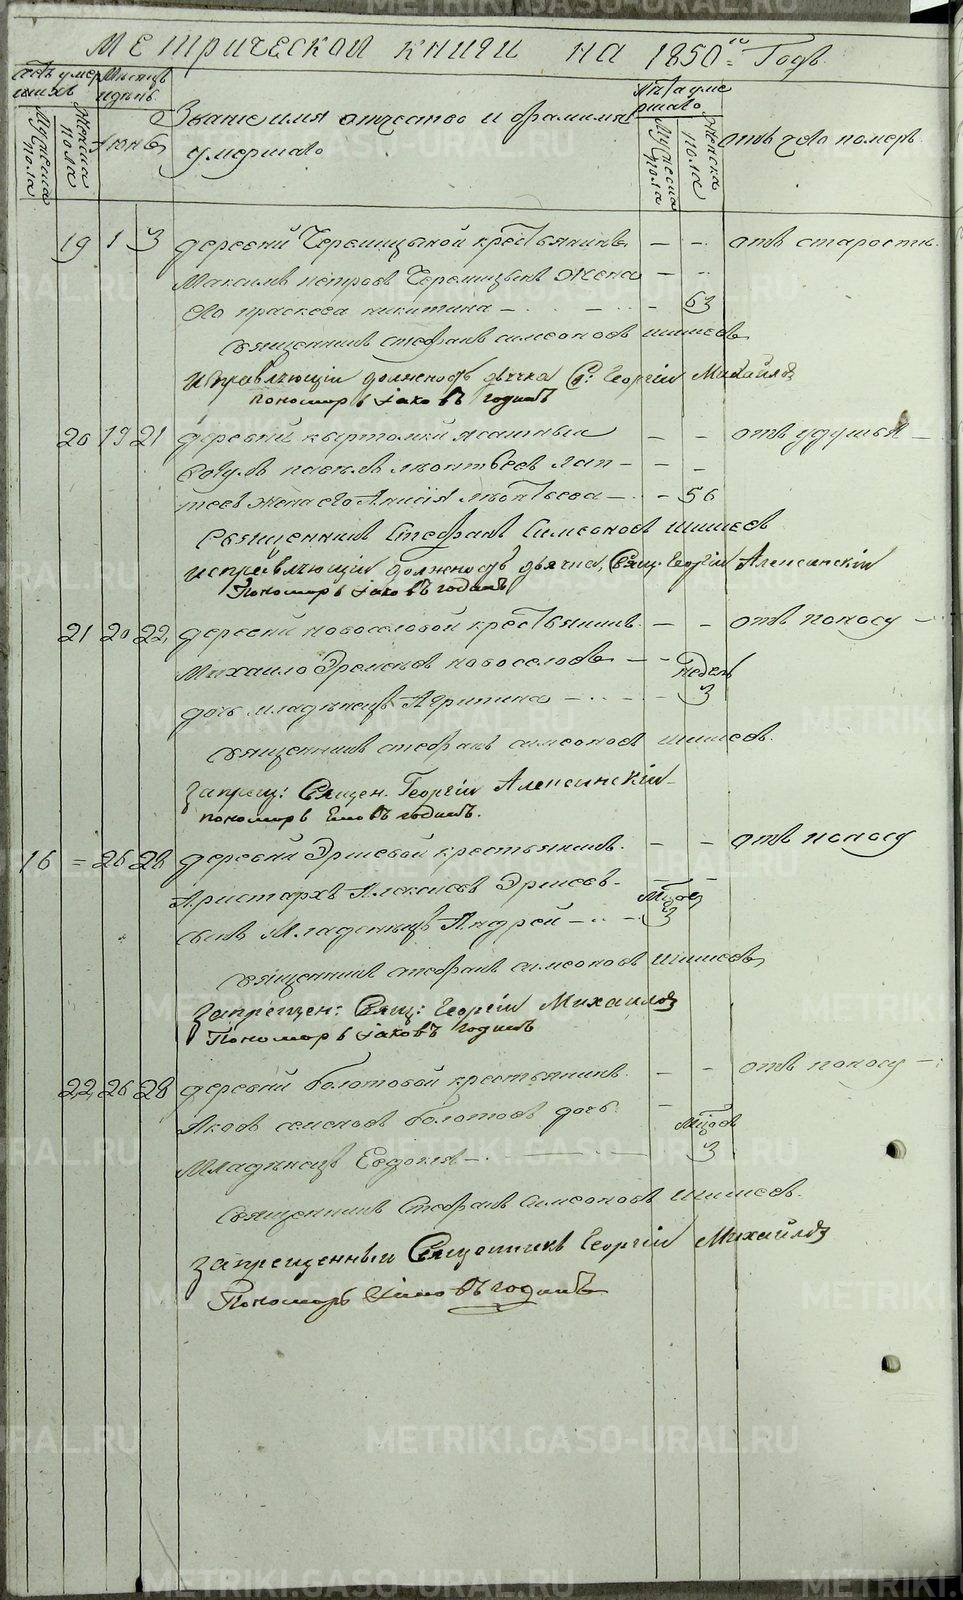 Метрической книги на 1850й Годъ.
Счетъ умер
шихъ
Мужеска
пола
Женска
пола
Месяцъ
и день
Июнь
Звание имя отчество и фамилия
умершаго
Лета уме
ршаго
Мужеска
пола
Женска
пола
отъ чего померъ
19 1 3 деревни Черемицыной крестьянинъ — — отъ старости.
Максимъ петровъ Черемицынъ Жена — —
его праскева никитина — 63
священникъ стефанъ симеоновъ шишевъ
Исправляющий должность дьячка Георгий Михайловъ
Пономарь Iаковъ годинъ
20 19 21 деревни ясашный — — отъ удушья —
павелъ леонтьевъ лап — —
тевъ жена его Анисiя леонтьева — — 56
Священникъ Стефанъ Симеоновъ шишевъ
исправляющий должность дьячка Свящ. Георгий Алексинскiй
Пономарь Iаковъ годинъ
21 20 22 деревни новоселовой крестьянинъ — — отъ поносу —
Михаило новоселовъ — — недель
дочь младенецъ — 3
священникъ стефанъ симеоновъ шишевъ.
запрещ: Священ. Георгий Алексинскiй
пономарь годинъ.
16 = 26 28 деревни Эршевой крестьянинъ. — — отъ поносу
Аристархъ Алексиевъ Эршовъ — Мцов
сынъ Младенецъ Андрей — 3
священникъ стефанъ симеоновъ шишевъ
Запрещен: Свящ: Георгий Михайловъ
Пономарь Iаковъ годинъ
22 26 28 деревни болотовой крестьянинъ — — отъ поносу —
Яковъ болотовъ дочь — Мцовъ
Младенецъ Евдокия — 3
Священникъ Стефанъ Симеоновъ шишевъ.
Запрещенный Священникъ Георгий Михайловъ
Пономарь годинъ
METRIKI.GASO-URAL.RU